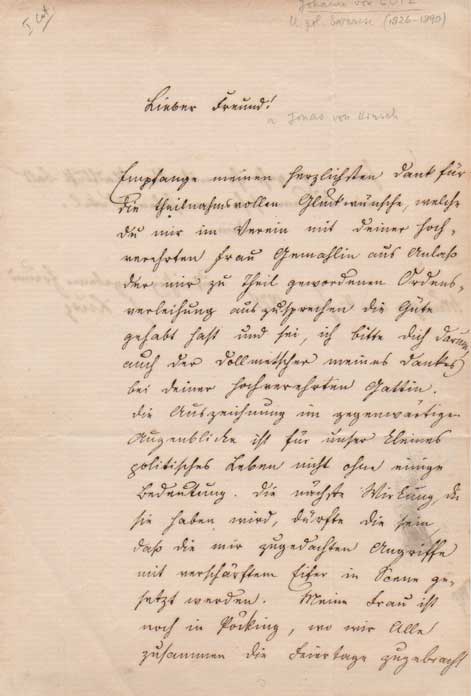 I Cat
Johann von LUTZ
(1826-1890)
Lieber Freund!
Jonas von Hirsch
Empfange meinen herzlichsten Dank für
die theilnahmsvollen Glückwünsche, welche
Du mir im Verein mit Deiner hoch-
verehrten Frau Gemahlin aus Anlaß
der mir zu Theil gewordenen Ordens-
verleihung auszusprechen die Güte
gehabt hast und sei, ich bitte Dich darum,
auch der Dollmetscher meines Dankes
bei Deiner hochverehrten Gattin.
Die Auszeichnung im gegenwärtigen
Augenblicke ist für unser kleines
politisches Leben nicht ohne einige
Bedeutung. Die nächste Wirkung, die
sie haben wird, dürfte die sein,
daß die mir zugedachten Angriffe
mit verschärftem Eifer in Scene ge-
setzt werden. Meine Frau ist
noch in Pöcking, wo wir Alle
zusammen die Feiertage zugebracht